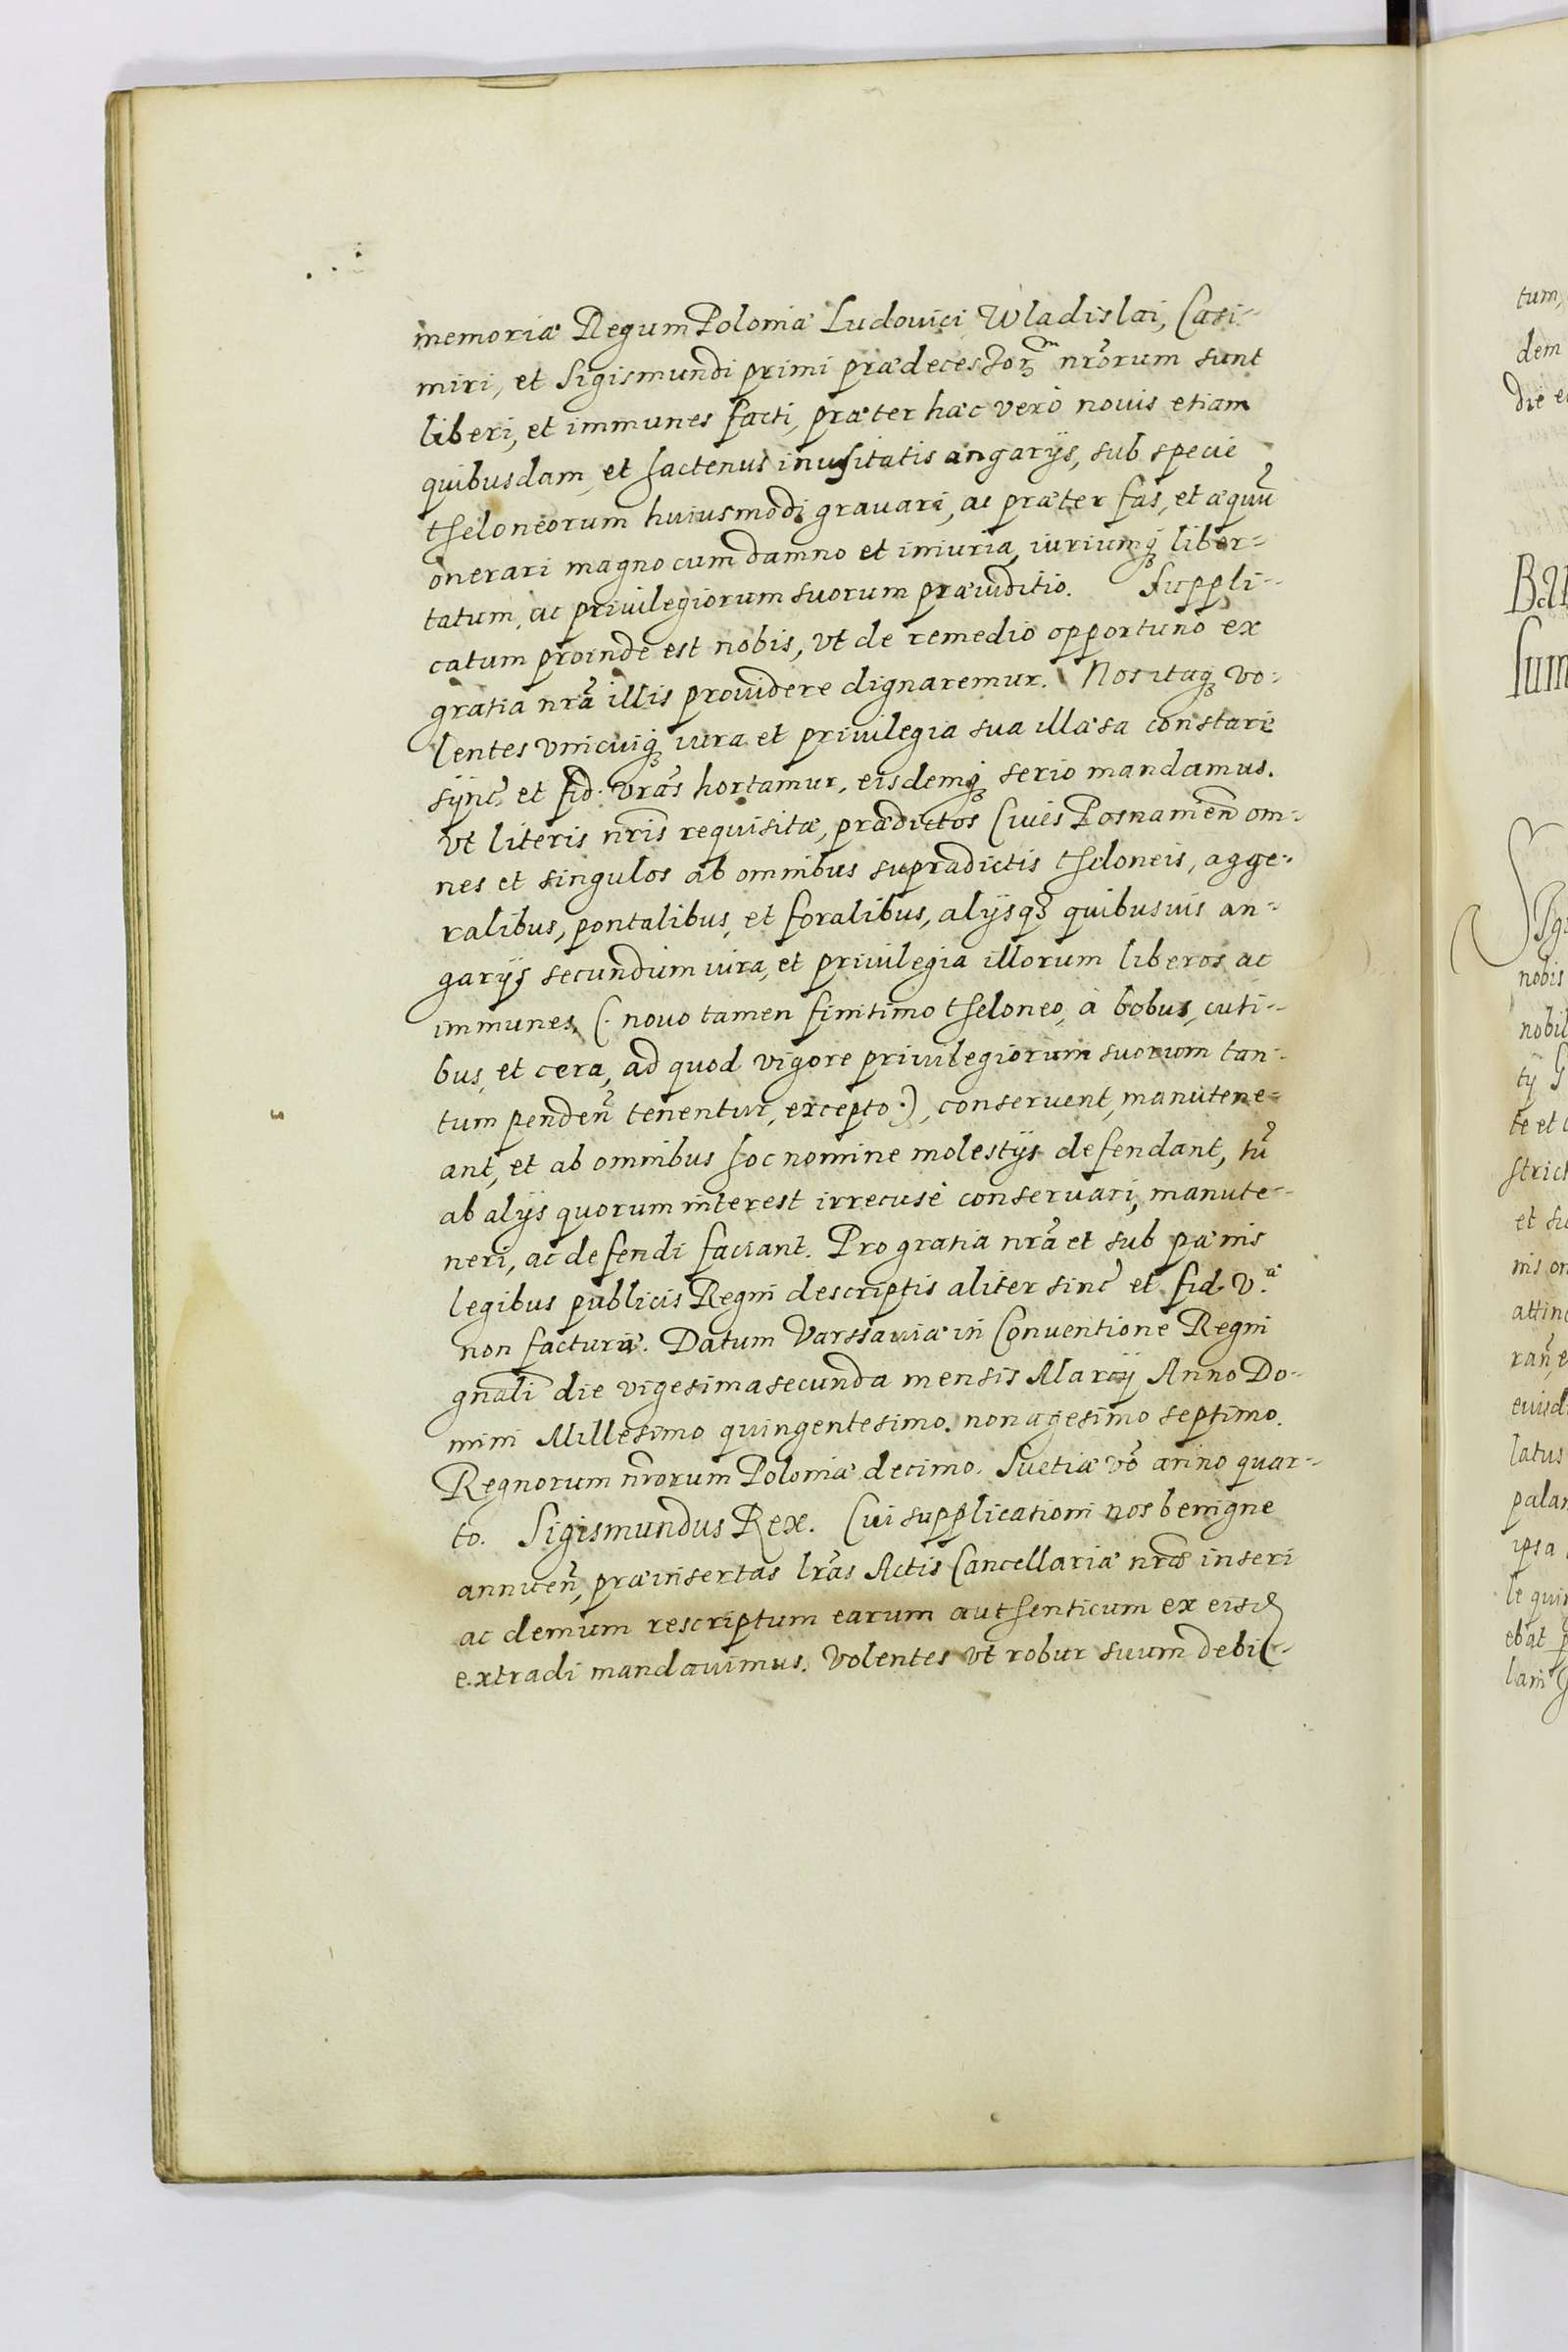 memoriæ Regum Poloniæ Ludouici Wladislai, Casi-
miri, et Sigismundi primi prædecessor͠m nr̃orum sunt
liberi, et immunes facti, præter hæc verò nouis etiam
quibusdam, et hactenus inusitatis angarijs, sub specie
theloneorum huiusmodi grauari, ac præter fas, et æquũ
onerari magno cum damno et iniuria, iuriumq́ liber-
tatum, ac priuilegiorum suorum præiuditio. Suppli-
catum proinde est nobis, vt de remedio opportuno ex
gratia nr̃a illis prouidere dignaremur. Nos itaq́ vo-
lentes vnicuiq́ iura et priuilegia sua illæsa constare
sÿnc̃. et fid. vr̃as hortamur, eisdemq́ serio mandamus.
vt literis nr̃is requisitæ, prædictos Ciues Posnamen̄ om-
nes et singulos ab omnibus supradictis theloneis, agge-
ralibus, pontalibus, et foralibus, alijsq́ quibusuis an-
garijs secundum iura, et priuilegia illorum liberos ac
immunes, (. nouo tamen finitimo theloneo, à bobus, cuti-
bus, et cera, ad quod vigore priuilegiorum suorum tan-
tum penden̄ tenentur, excepto.), conseruent, manutene-
ant, et ab omnibus hoc nomine molestijs defendant, tũ
ab alijs quorum interest irrecusè conseruari, manute-
neri, ac defendi faciant. Pro gratia nr̃a et sub pænis
legibus publicis Regni descriptis aliter sinc̃ et fid. V.ᵃ
non facturæ. Datum Varssauiæ in Conuentione Regni
gnãli die vigesima secunda mensis Marcij Anno Do-
mini Millesimo quingentesimo nonagesimo septimo.
Regnorum nr̃orum Poloniæ decimo. Suetiæ vo᷈ anno quar-
to. Sigismundus Rex. Cui supplicationi nos benigne
annuen̄, præinsertas lr̃as Actis Cancellariæ nr̃æ inseri
ac demum rescriptum earum authenticum ex eisd
extradi mandauimus. Volentes vt robur suum debi-
tum,
dem
die
nobis
te et
latus
ipsa